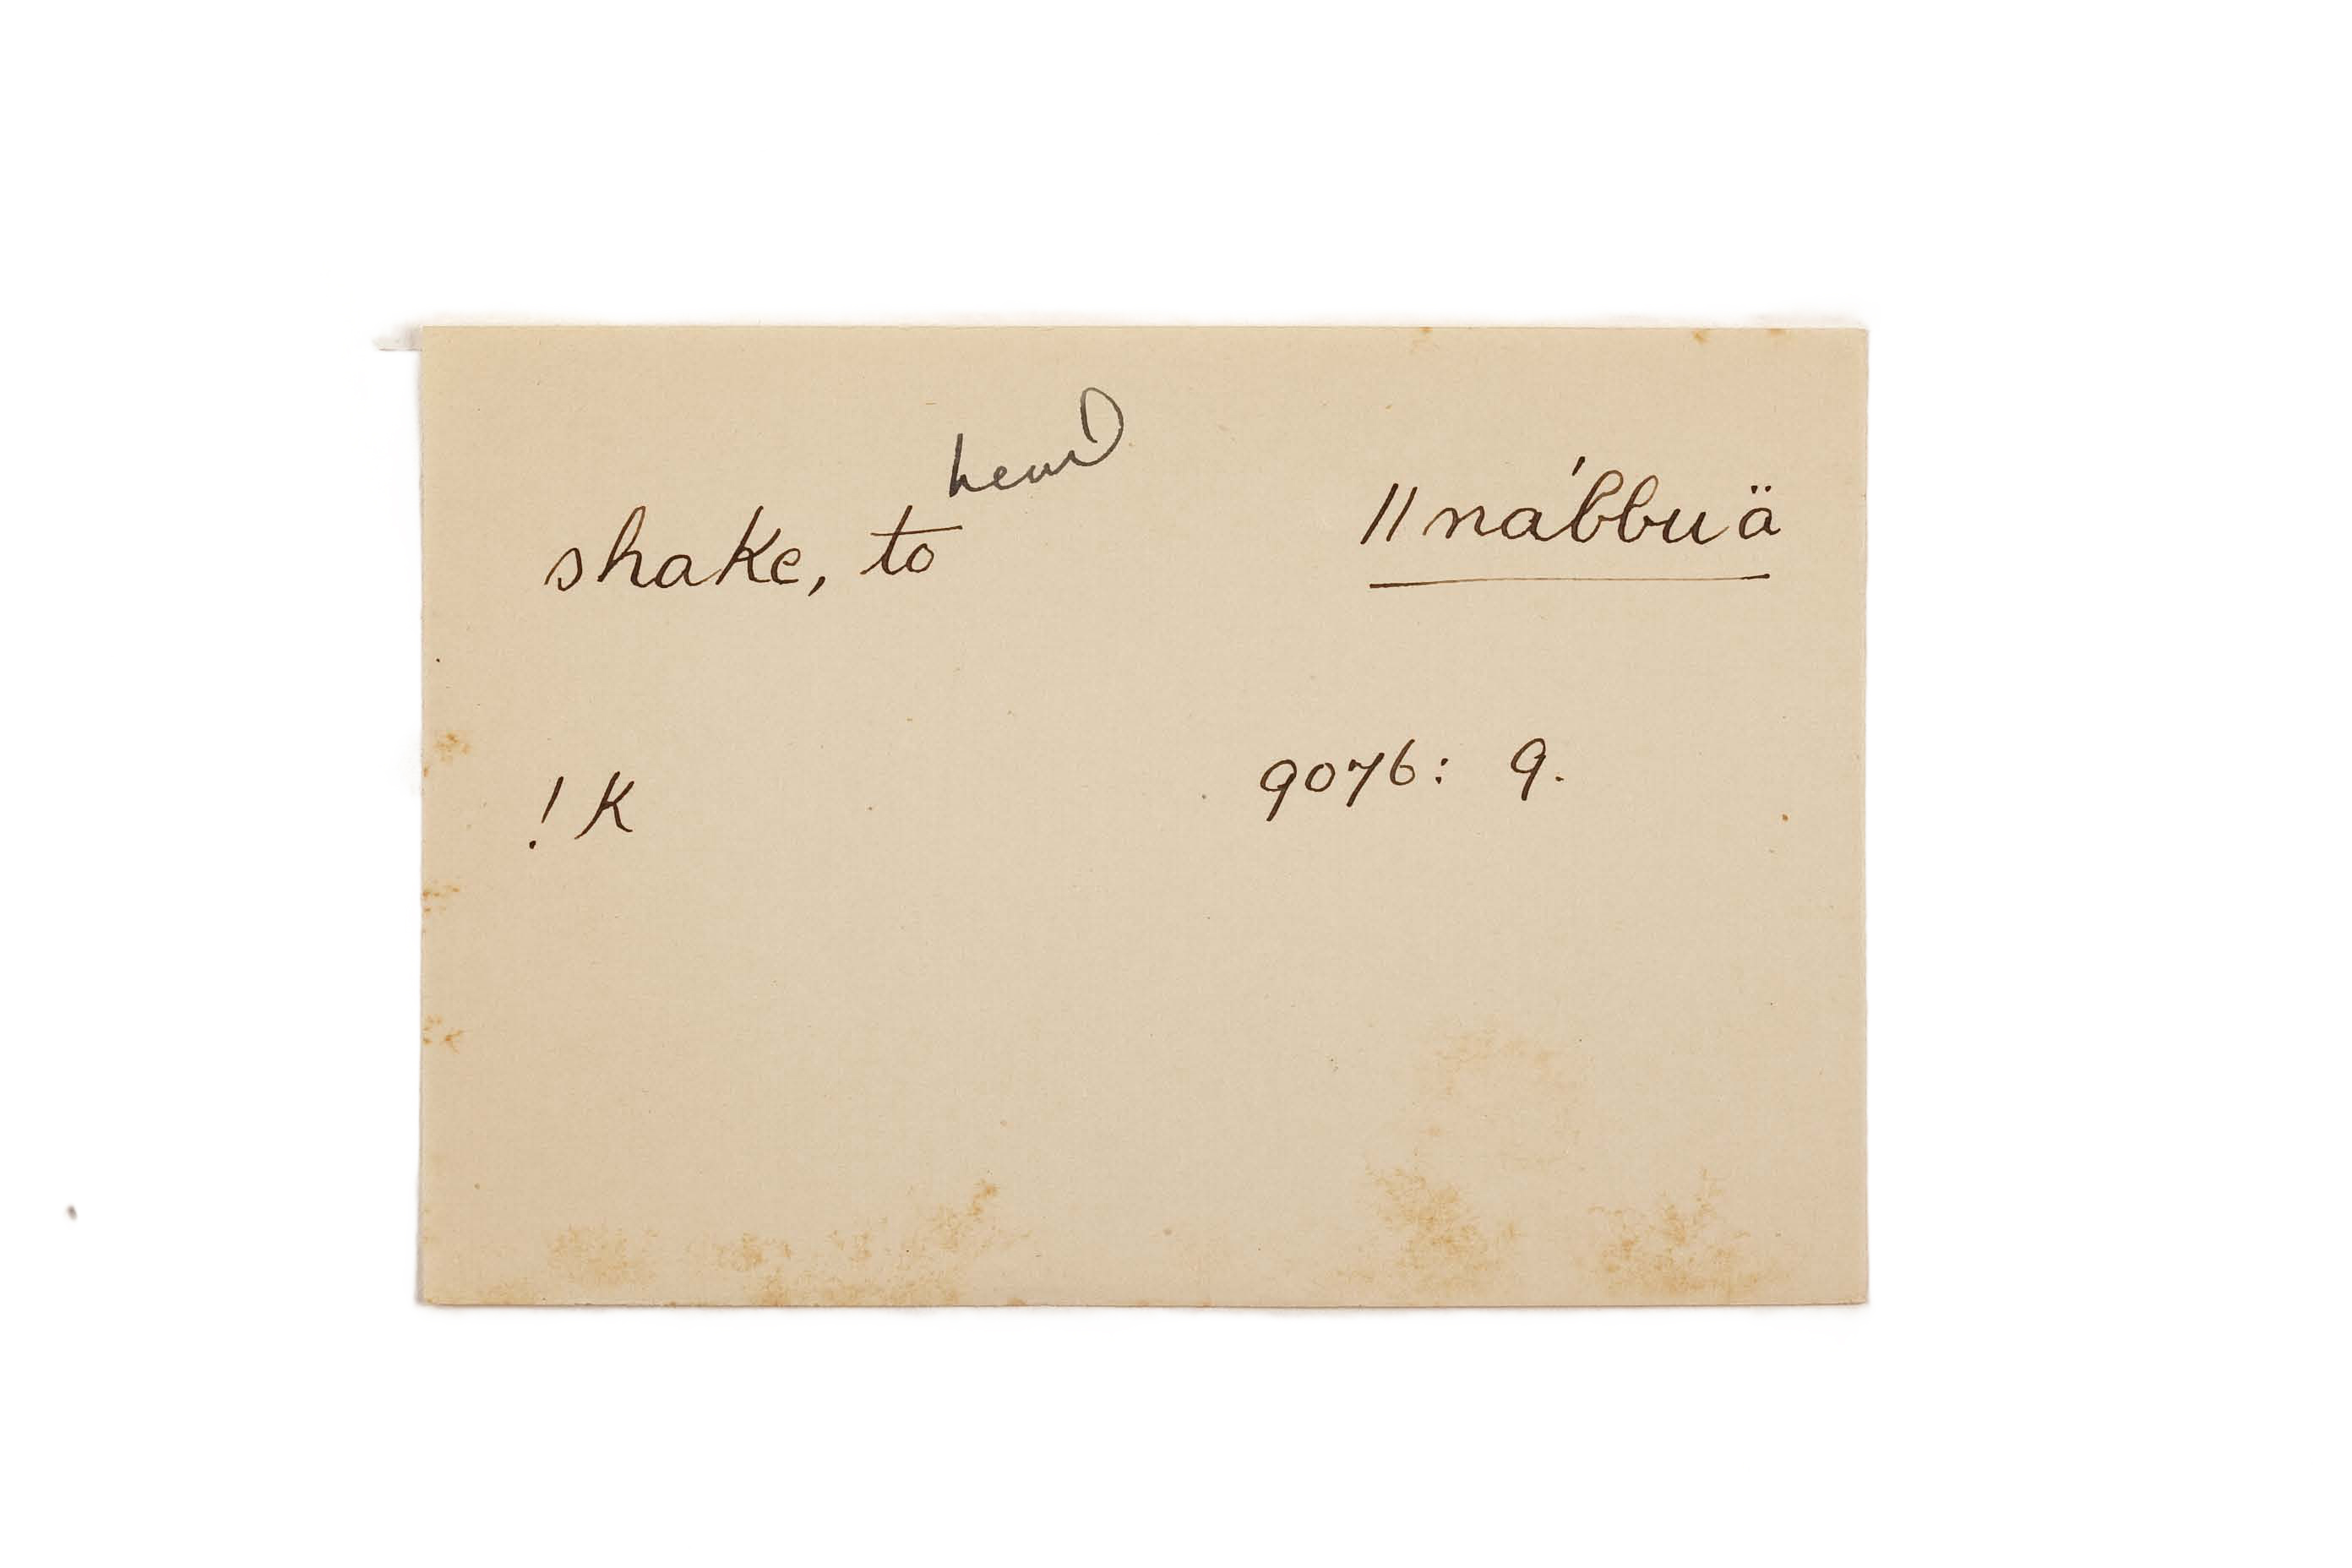 head
shake, to
//nábbuä
9076: 9.
!K